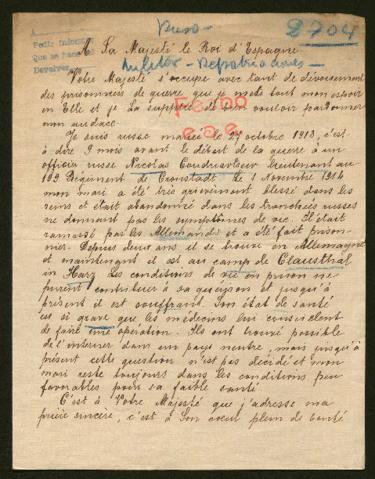 Ruso
2704
Pedir indul
Que se haga
Devolver
A Sa Majesté le Roi d'Espagne
Militar - Repatriaciones -
Votre Majesté s'occupe avec tant de dévouement
des prisonniers de guerre que je mets tout mon espoir
en Elle et je La supplie de bien vouloir pardonner
mon audace.
Fecho
Je suis russe mariée le 27 octobre 1913, c'est
à dire 9 mois avant le début de la guerre à un
officier russe Nicolas lieutenant au
Régiment de Cronstadt. Le 1 Novembre 1914
mon mari a été très grièvement blessé dans les
reins et était abandonné dans les tranchées russes
ne donnant pas les symptômes de vie. Il était
ramassé par les Allemands et a été fait prison-
nier. Depuis deux ans il se trouve en Allemagne
et maintenant il est au camp de Clausthal
in Harz. Les conditions de vie en prison ne
peuvent contribuer à sa guérison et jusqu'à
présent il est souffrant. Son état de santé
est si grave que les médecins lui conseillent
de faire une opération. Ils ont trouvé possible
de l'interner dans un pays neutre, mais jusqu'à
présent cette question n'est pas décidé et mon
mari reste toujours dans les conditions peu
favorables pour sa faible santé.
C'est à Votre Majesté que j'adresse ma
prière sincère, c'est à Son cœur plein de bonté